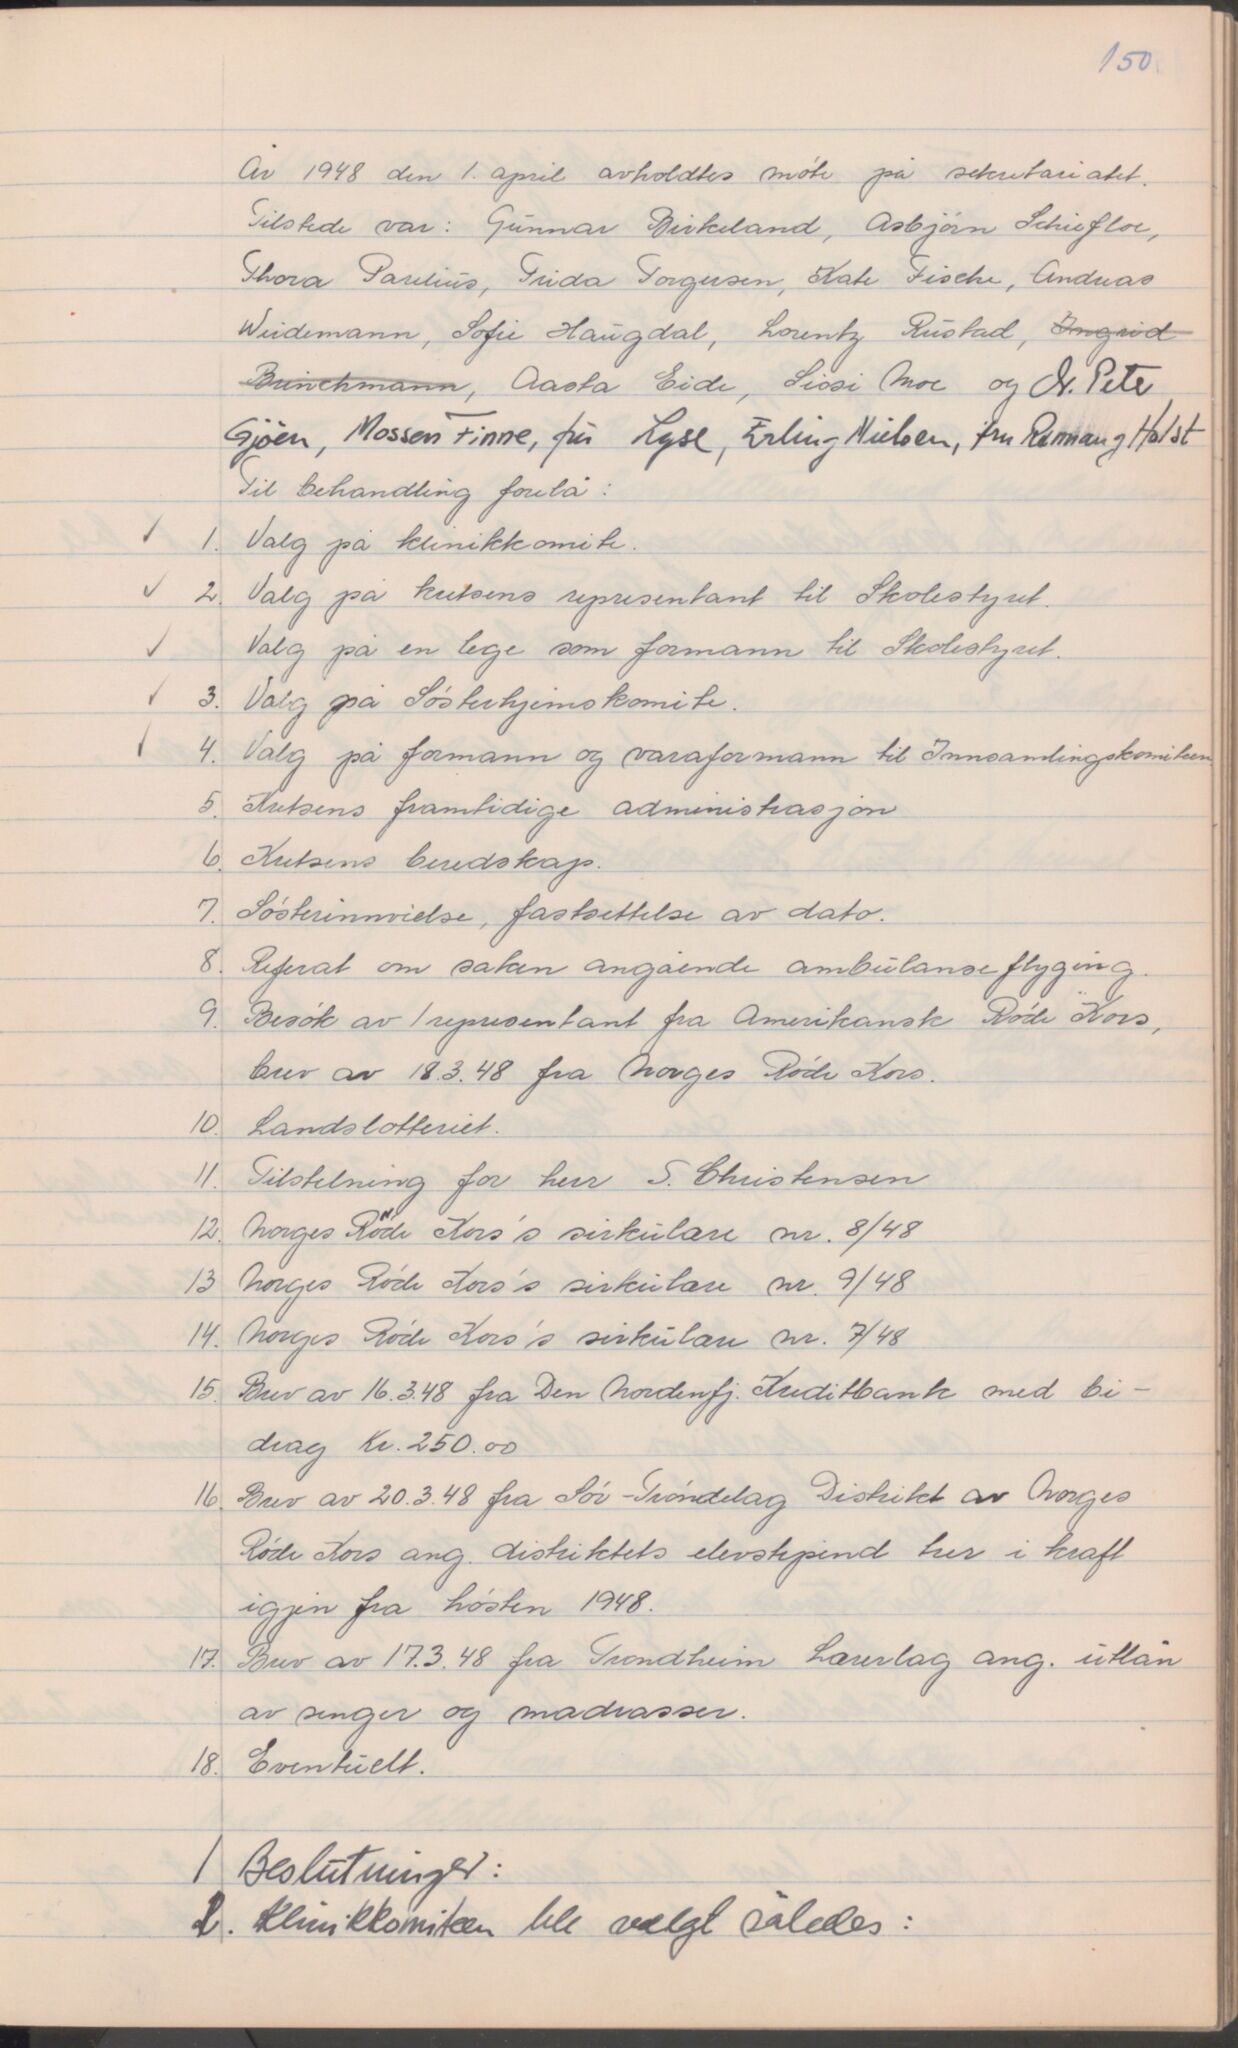 150
År 1948 den 1. april avholdtes møte på sekretariatet.
Tilstede var: Gunnar Birkeland, Asbjørn Schiefloe,
Thora Parelius, Frida Torgersen, Kate Fische, Andreas
Weidemann, Sofie Haugdal, Lorentz Rustad, Ingrid
Brinchmann, Aasta Eide, Sissi Moe og Dr. Peter
Gjöen, Mossen Finne, fru Lyse, Erling Nielsen, fru Rannaug Holst
Til behandling forelå:
✓ 1. Valg på klinikkomite.
✓ 2. Valg på kretsens representant til Skolestyret.
✓ Valg på en lege som formann til Skolestyret.
✓ 3. Valg på Søsterhjemskomite.
✓ 4. Valg på formann og varaformann til Innsamlingskomiteen
5. Kretsens framtidige administrasjon
6. Kretsens beredskap.
7. Søsterinnvielse, fastsettelse av dato.
8. Referat om saken angående ambulanseflyging.
9. Besøk av 1 representant fra Amerikansk Røde Kors,
brev av 18.3.48 fra Norges Røde Kors.
10. Landslotteriet.
11. Tilstelning for herr S. Christensen
12. Norges Røde Kors's sirkulære nr. 8/48
13 Norges Røde Kors's sirkulære nr. 9/48
14. Norges Røde Kors's sirkulære nr. 7/48
15. Brev av 16.3.48 fra Den Nordenfj. Kreditbank med bi-
drag Kr. 250.00
16. Brev av 20.3.48 fra Sør-Trøndelag Distrikt av Norges
Røde Kors ang. distriktets elevstipend trer i kraft
igjen fra høsten 1948.
17. Brev av 17.3.48 fra Trondheim Lærerlag ang. utlån
av senger og madrasser.
18. Eventuelt.
1 Beslutninger:
2. Klinikkomiteen ble valgt således: